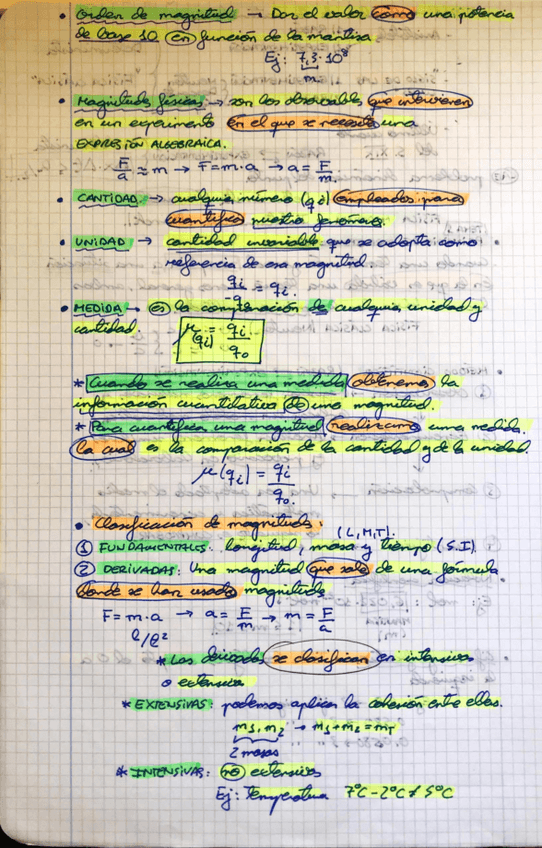 • Orden de magnitud → Dar el valor como una potencia
de base 10 en función de la mantisa
Ej: 7,3·10⁸
m
• Magnitudes físicas → son los observables que intervienen
en un experimento en el que se necesita una
EXPRESIÓN ALGEBRAICA.
F/a = m → F=m·a → a = F/m
• CANTIDAD → cualquier número (qi) empleados para
cuantificar nuestro fenómeno.
• UNIDAD → cantidad invariable que se adopta como
referencia de esa magnitud.
qi/q = qi
• MEDIDA → es la comparación de cualquier unidad y
cantidad. μ(qi) = qi/q0
* Cuando se realiza una medida obtenemos la
información cuantitativa de una magnitud.
* Para cuantificar una magnitud realizamos una medida.
la cual es la comparación de la cantidad y de la unidad.
μ(qi) = qi/q0.
• Clasificación de magnitudes:
(L, M, T).
① FUNDAMENTALES: longitud, masa y tiempo (S.I).
② DERIVADAS: Una magnitud que sale de una fórmula
donde se han usado magnitudes
F=m·a → a = F/m → m = F/a
* Las derivadas se clasifican en intensivas
o extensivas
* EXTENSIVAS: podemos aplicar la cohesión entre ellas.
m1, m2 → m1+m2 = mT
2 masas
* INTENSIVAS: no extensivas
Ej: Temperatura 7°C - 2°C ≠ 5°C